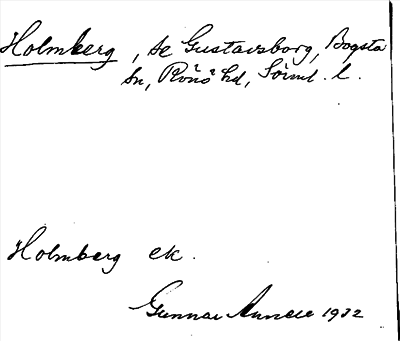 Holmberg, se Gustavsborg, Bogsta
sn, Rönö hd, Söml. l.
Holmberg ek.
Gunnar Annell 1932